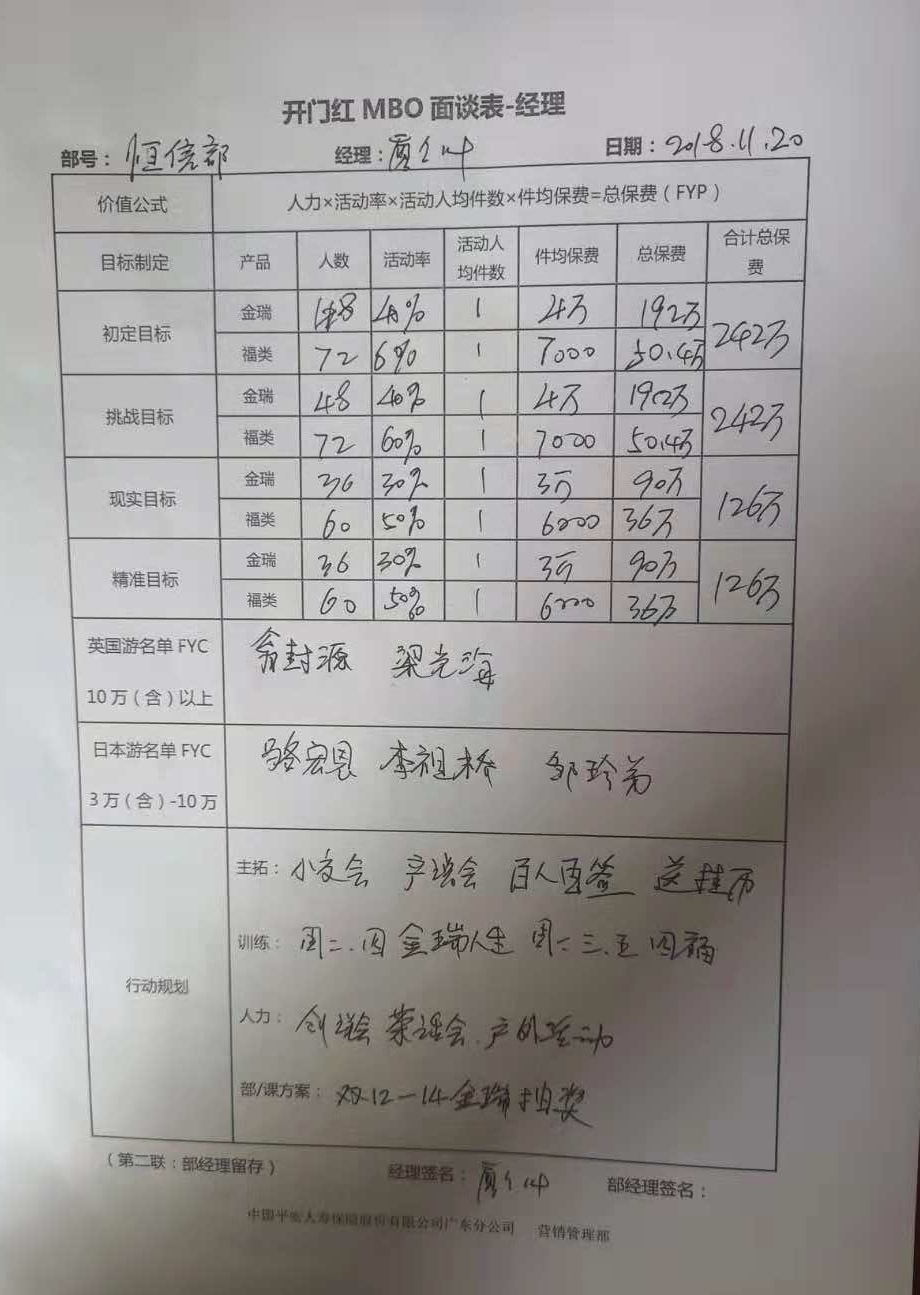 开门红 MBO 面谈表-经理
部号：恒信部 经理： 日期：2018.11.20
价值公式 人力×活动率×活动人均件数×件均保费=总保费（FYP）
目标制定 产品 人数 活动率 活动人均件数 件均保费 总保费 合计总保费
初定目标 金瑞 48 40% 1 4万 192万 242万
福类 72 6% 1 7000 50.4万
挑战目标 金瑞 48 40% 1 4万 192万 242万
福类 72 60% 1 7000 50.4万
现实目标 金瑞 36 30% 1 3万 90万 126万
福类 60 50% 1 6000 36万
精准目标 金瑞 36 30% 1 3万 90万 126万
福类 60 50% 1 6000 36万
英国游名单 FYC
10万（含）以上
翁封源 梁光海
日本游名单 FYC
3万（含）-10万
骆宏恩 李祖桥 邹珍弟
行动规划
主拓：小交会 产说会 百人百签 送挂历
训练：周二.四 金瑞人生 周 三.五 四福
人力：创说会 户外活动
部/课方案：双12-14金瑞抽奖
（第二联：部经理留存） 经理签名： 部经理签名：
中国平安人寿保险股份有限公司广东分公司 营销管理部